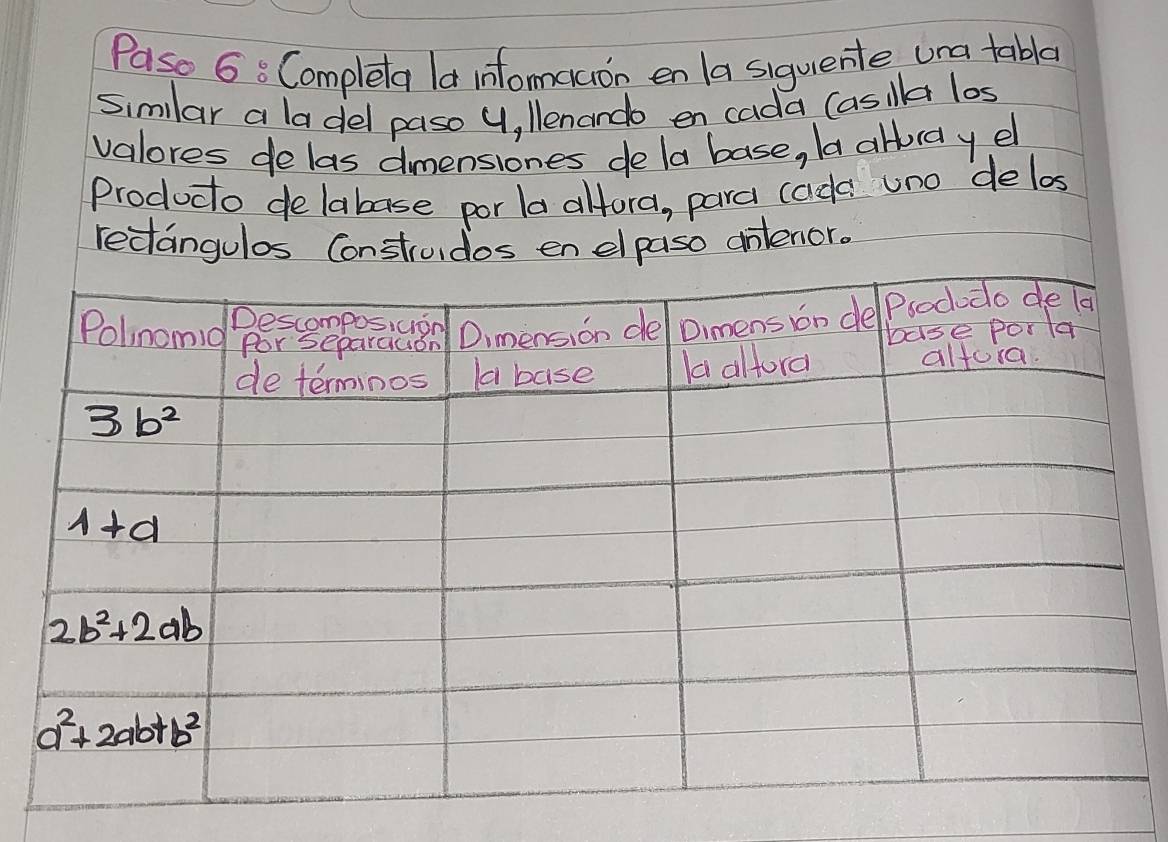 Paso 6: Completa la información en la siguiente una tabla
similar a la del paso 4, llenando en cada casilla los
valores de las dimensiones de la base, la altura y el
Producto de la base por la altura, para cada uno de los
rectángulos Construidos en el paso anterior.
Polinomio
Descomposición
Por separación
de términos
Dimensión de
la base
Dimensión de
la altura
Producto de la
base por la
altura.
3b²
1+a
2b²+2ab
a²+2ab+b²